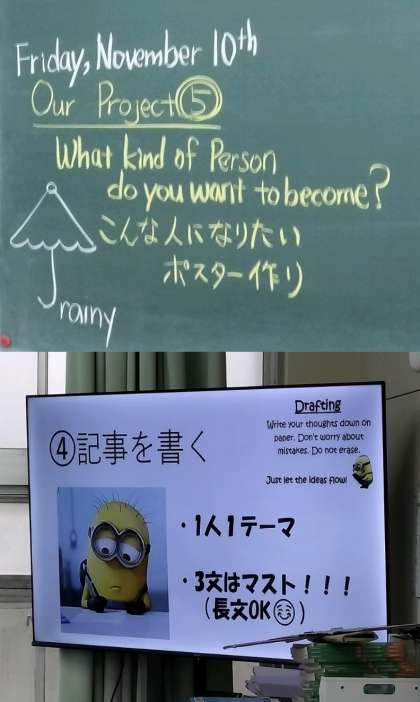 Friday, November 10th
Our Project⑤
What kind of Person
do you want to become?
こんな人になりたい
ポスター作り
rainy
④記事を書く
Drafting
Write your thoughts down on
paper. Don't worry about
mistakes. Do not erase.
Just let the ideas flow!
・1人1テーマ
・3文はマスト！！！
（長文OK😊）